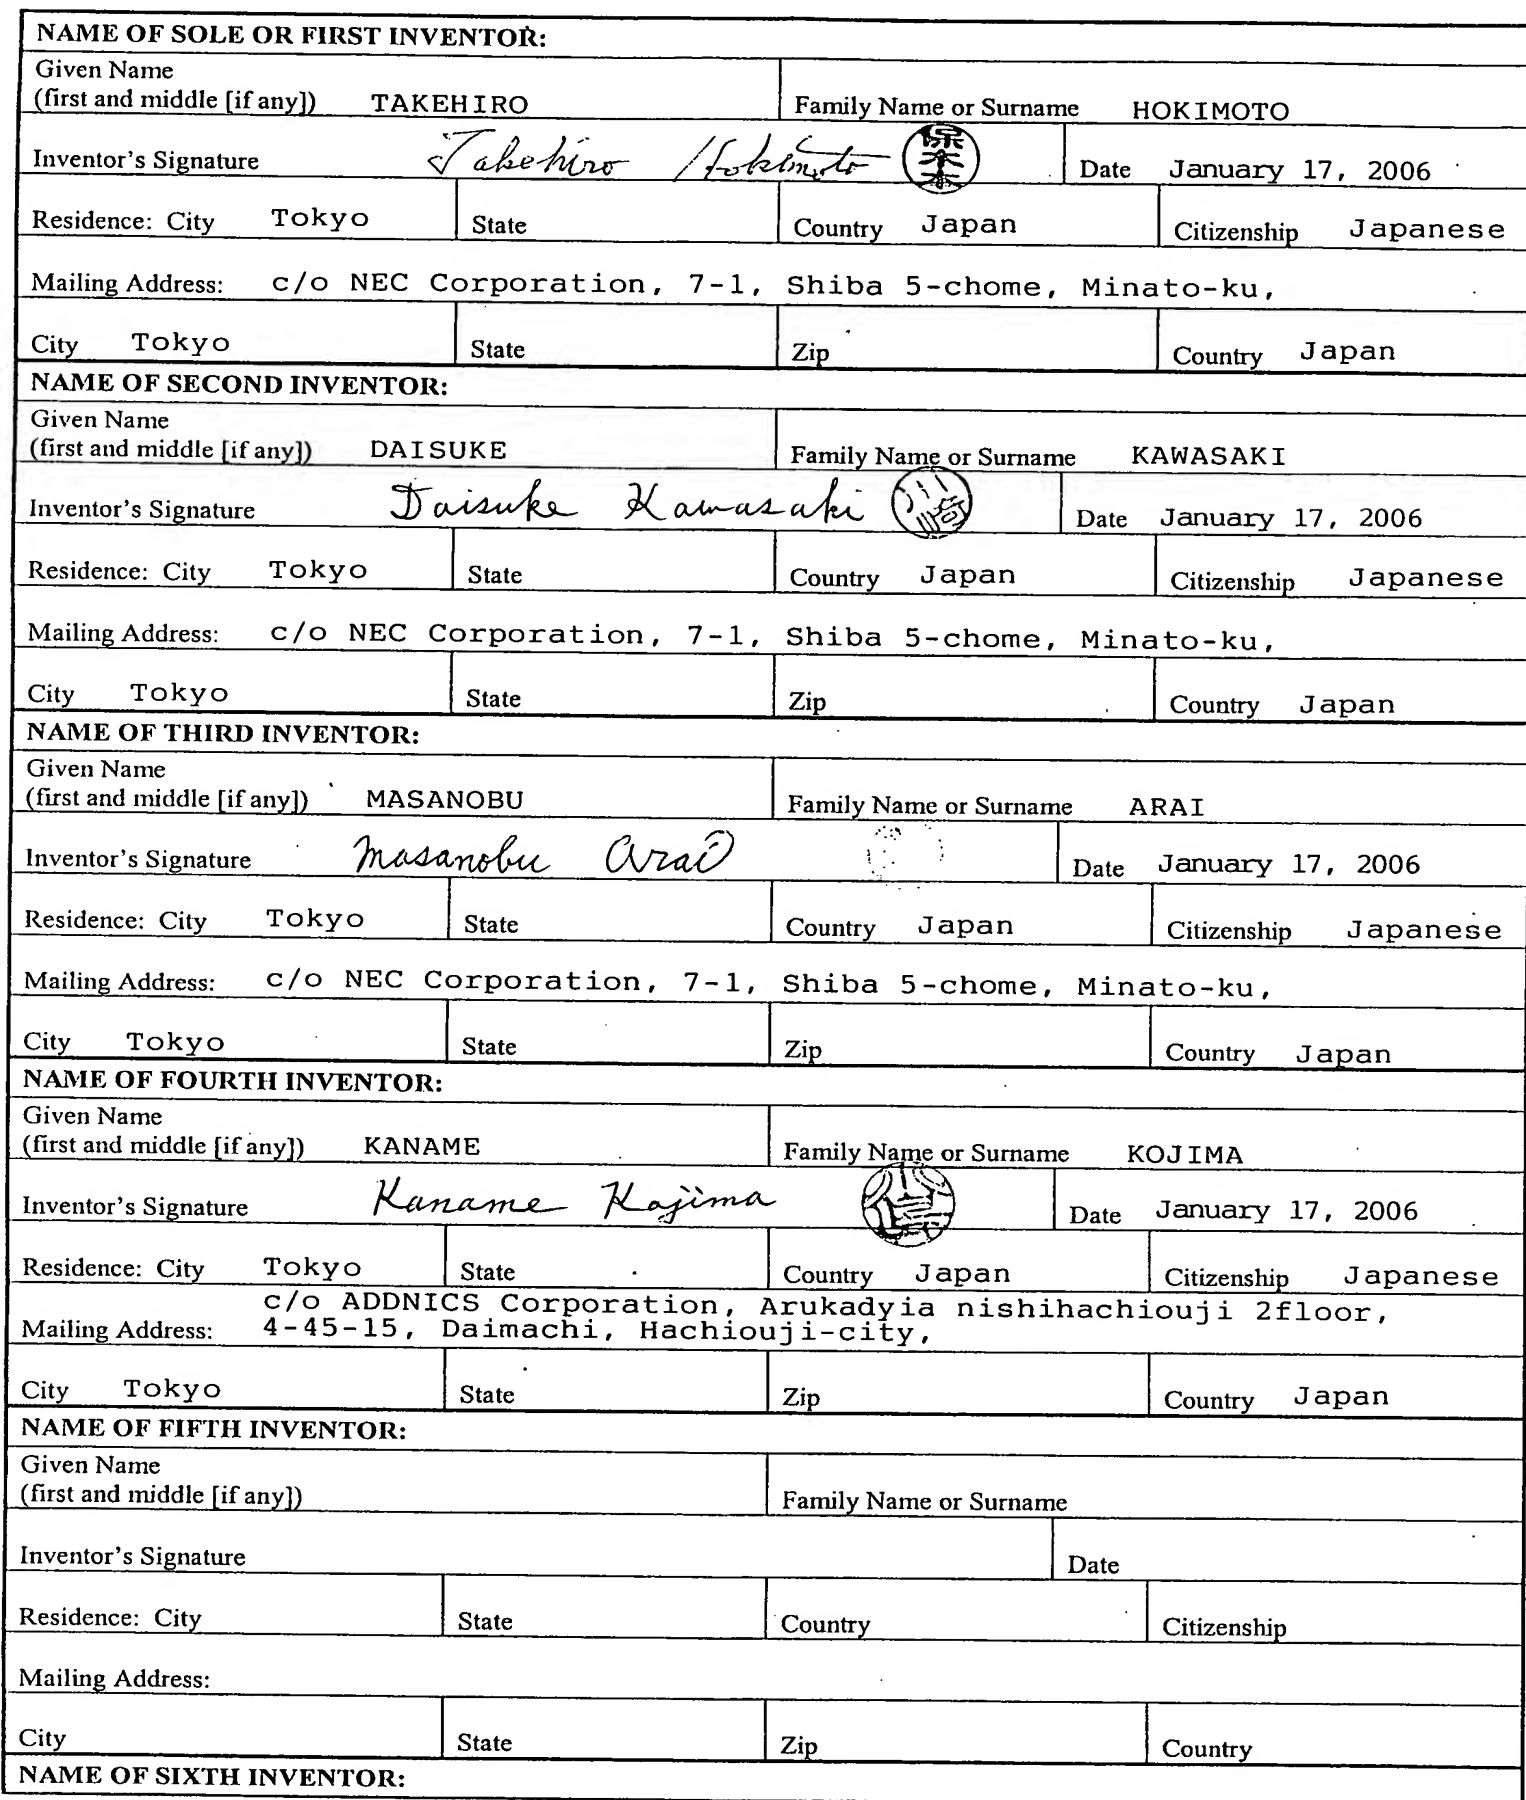 NAME OF SOLE OR FIRST INVENTOR:
Given Name
(first and middle [if any]) TAKEHIRO Family Name or Surname HOKIMOTO
Inventor's Signature Takehiro Hokimoto Date January 17, 2006
Residence: City Tokyo State Country Japan Citizenship Japanese
Mailing Address: c/o NEC Corporation, 7-1, Shiba 5-chome, Minato-ku,
City Tokyo State Zip Country Japan
NAME OF SECOND INVENTOR:
Given Name
(first and middle [if any]) DAISUKE Family Name or Surname KAWASAKI
Inventor's Signature Daisuke Kawasaki Date January 17, 2006
Residence: City Tokyo State Country Japan Citizenship Japanese
Mailing Address: c/o NEC Corporation, 7-1, Shiba 5-chome, Minato-ku,
City Tokyo State Zip Country Japan
NAME OF THIRD INVENTOR:
Given Name
(first and middle [if any]) MASANOBU Family Name or Surname ARAI
Inventor's Signature Masanobu Arai Date January 17, 2006
Residence: City Tokyo State Country Japan Citizenship Japanese
Mailing Address: c/o NEC Corporation, 7-1, Shiba 5-chome, Minato-ku,
City Tokyo State Zip Country Japan
NAME OF FOURTH INVENTOR:
Given Name
(first and middle [if any]) KANAME Family Name or Surname KOJIMA
Inventor's Signature Kaname Kojima Date January 17, 2006
Residence: City Tokyo State Country Japan Citizenship Japanese
c/o ADDNICS Corporation, Arukadyia nishihachiouji 2floor,
Mailing Address: 4-45-15, Daimachi, Hachiouji-city,
City Tokyo State Zip Country Japan
NAME OF FIFTH INVENTOR:
Given Name
(first and middle [if any]) Family Name or Surname
Inventor's Signature Date
Residence: City State Country Citizenship
Mailing Address:
City State Zip Country
NAME OF SIXTH INVENTOR: